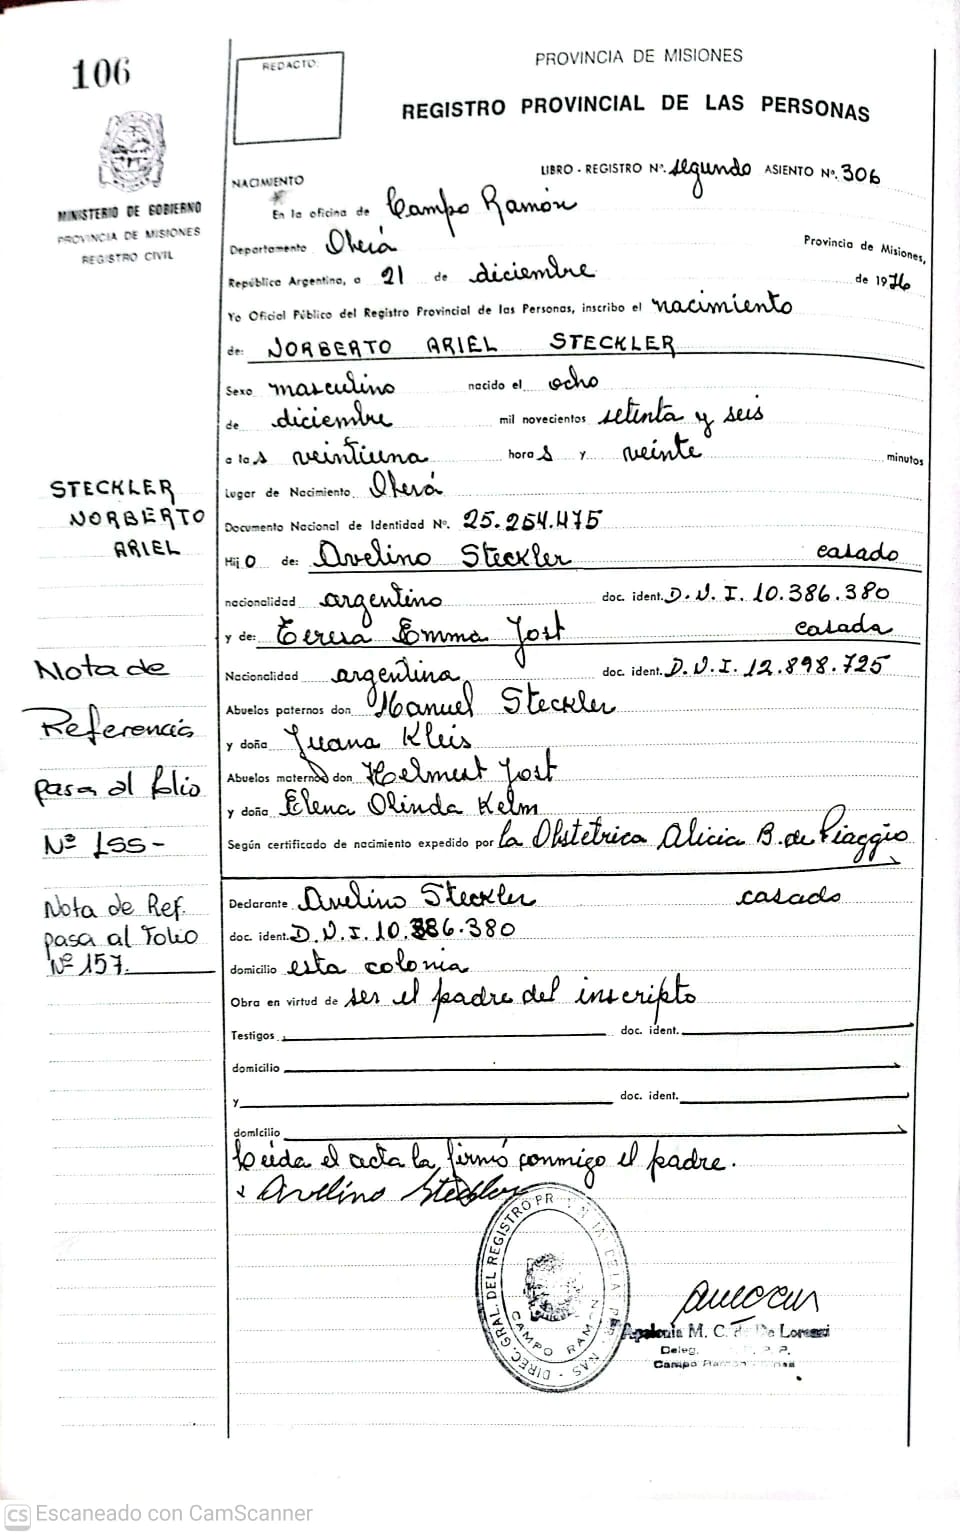 106
REDACTO:
PROVINCIA DE MISIONES
REGISTRO PROVINCIAL DE LAS PERSONAS
MINISTERIO DE GOBIERNO
PROVINCIA DE MISIONES
REGISTRO CIVIL
LIBRO - REGISTRO Nº. segundo ASIENTO Nº. 306
NACIMIENTO
En la oficina de Campo Ramón
Departamento Oberá Provincia de Misiones,
República Argentina, a 21 de diciembre de 1976
Yo Oficial Público del Registro Provincial de las Personas, inscribo el nacimiento
de: NORBERTO ARIEL STECKLER
Sexo masculino nacido el ocho
de diciembre mil novecientos setenta y seis
a las veintiuna horas y veinte minutos
Lugar de Nacimiento Oberá
Documento Nacional de Identidad Nº. 25.254.475
Hijo de: Avelino Steckler casado
nacionalidad argentino doc. ident. D.N.I. 10.386.380
y de: Teresa Emma Jost casada
Nacionalidad argentina doc. ident. D.N.I. 12.898.725
Abuelos paternos don Manuel Steckler
y doña Juana Kleis
Abuelos maternos don Helmut Jost
y doña Elena Olinda Kelm
Según certificado de nacimiento expedido por la Obstétrica Alicia B. de Piaggio
Declarante Avelino Steckler casado
doc. ident. D.N.I. 10.386.380
domicilio esta colonia
Obra en virtud de ser el padre del inscripto
Testigos doc. ident.
domicilio
y doc. ident.
domicilio
Leída el acta la firmó conmigo el padre.
x Avelino Steckler
STECKLER
NORBERTO
ARIEL
Nota de
Referencia
pasa al folio
Nº 155-
Nota de Ref.
pasa al Folio
Nº 157.
DIREC. GRAL. DEL REGISTRO
CAMPO RAMON
Apolonia M. C. de De Lorenzi
Deleg.
Campo Ramón
CS Escaneado con CamScanner